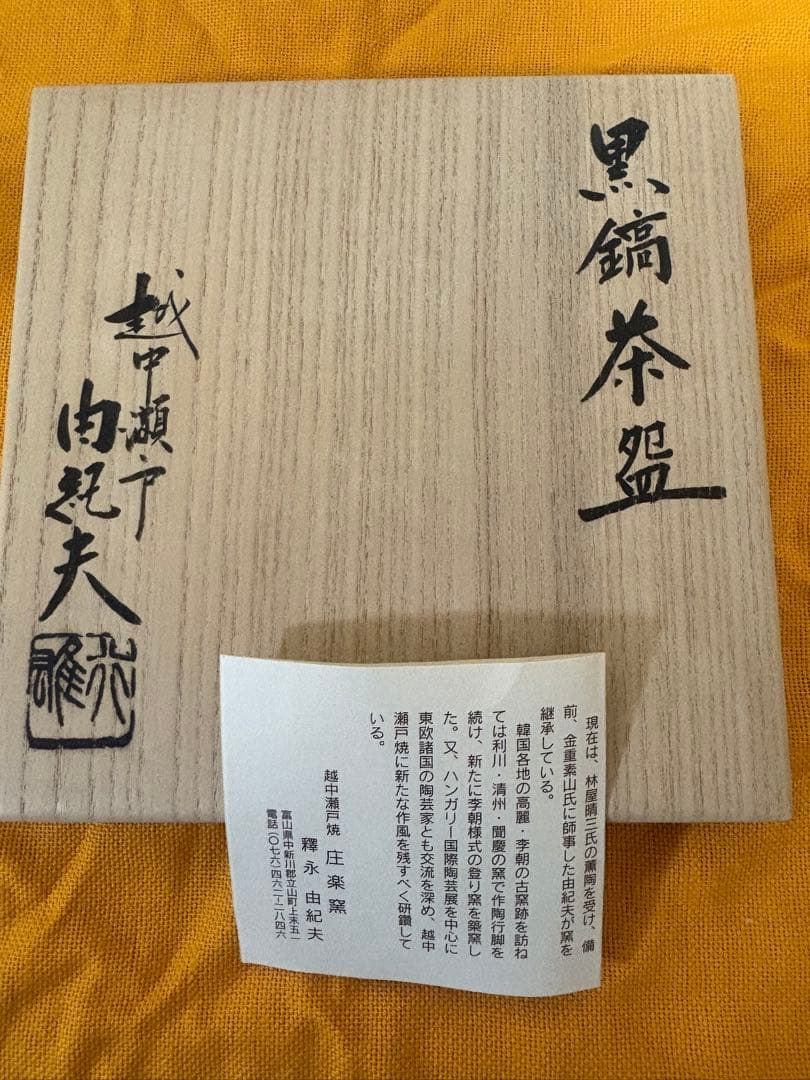 黒鎬茶盌
越中瀬戸
由紀夫
現在は、林屋晴三氏の薫陶を受け、備
前、金重素山氏に師事した由紀夫が窯を
継承している。
韓国各地の高麗・李朝の古窯跡を訪ね
ては利川・清州・聞慶の窯で作陶行脚を
続け、新たに李朝様式の登り窯を築窯し
た。又、ハンガリー国際陶芸展を中心に
東欧諸国の陶芸家とも交流を深め、越中
瀬戸焼に新たな作風を残すべく研鑽して
いる。
越中瀬戸焼 庄楽窯
釋永 由紀夫
富山県中新川郡立山町上末五一
電話(〇七六)四六二ー二八四六